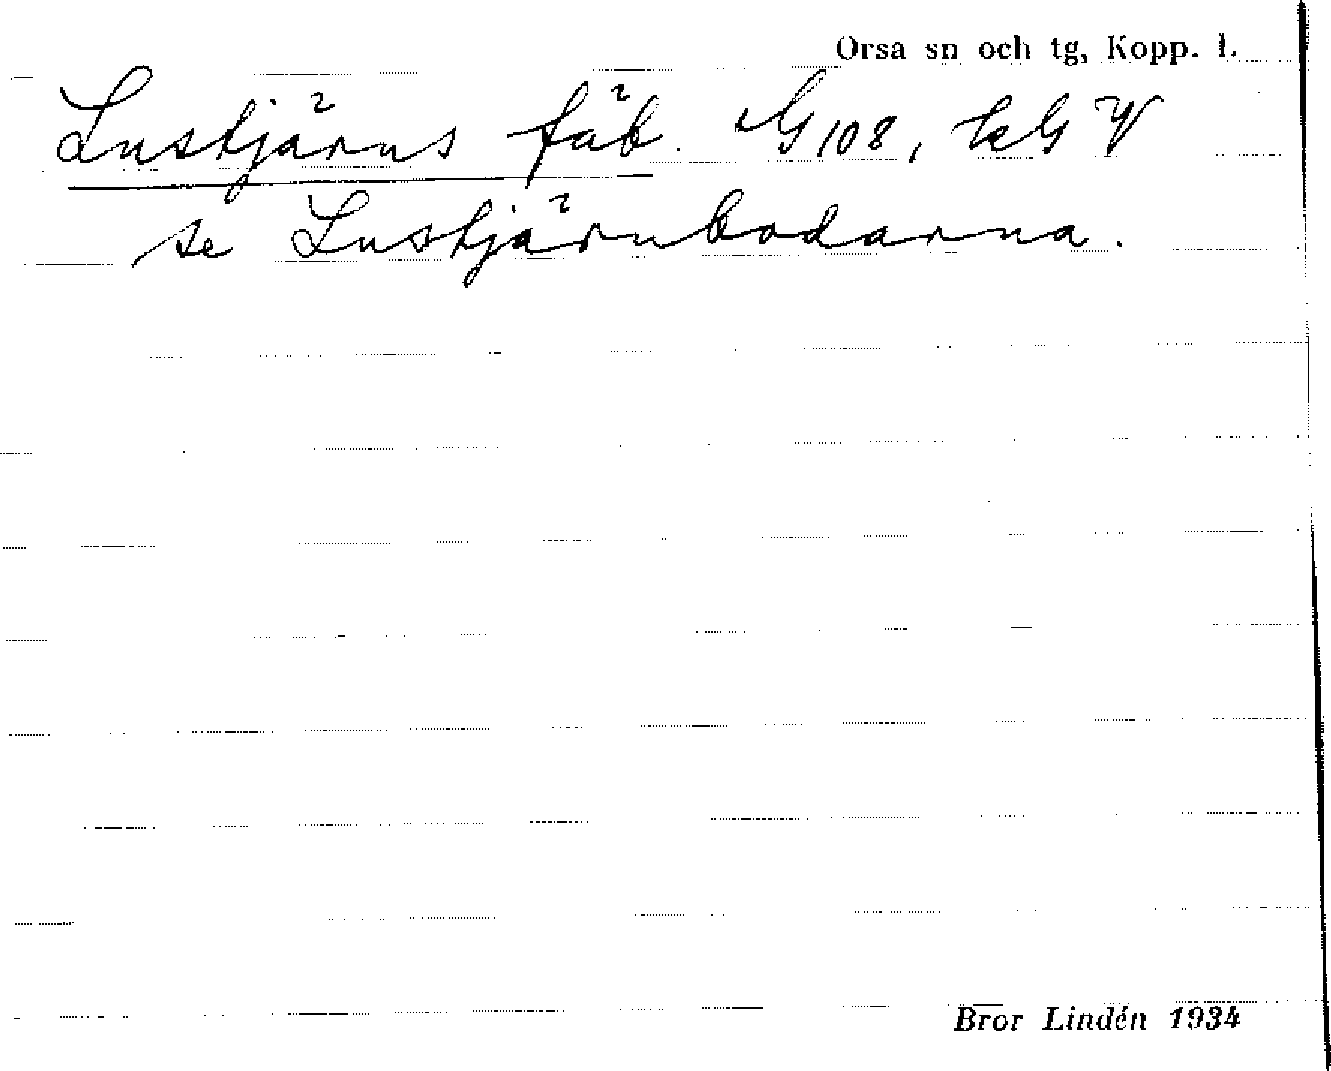 Orsa sn och tg, Kopp. l.
Lustjärns fäb. G 108,
se Lustjärnbodarna.
Bror Lindén 1934